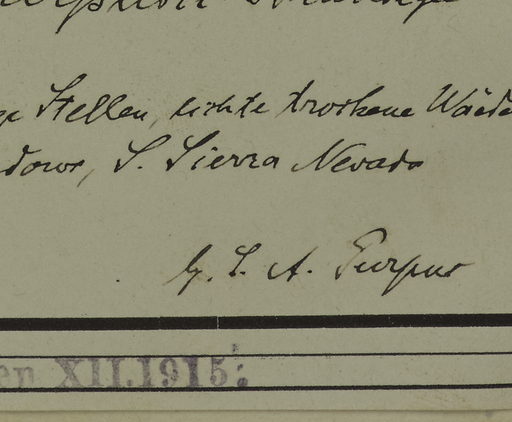 ge Stellen, lichte trockene Wälde
dows, S. Sierra Nevada
lg. C. A. Purpus
en XII.1915.